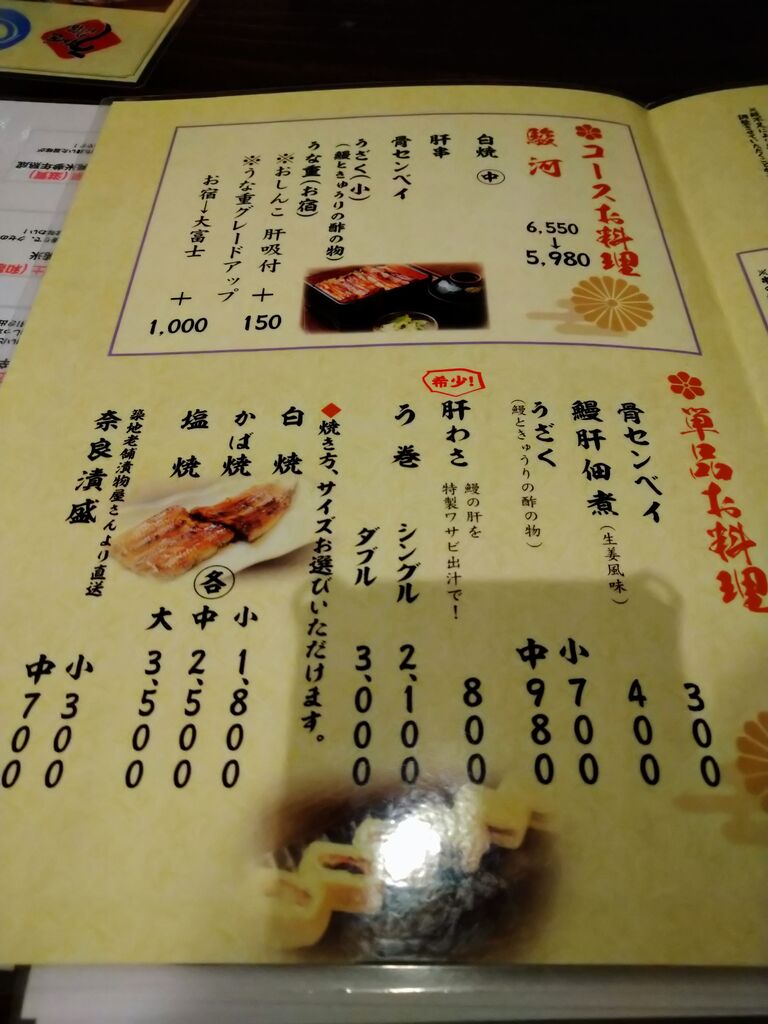 コースお料理
駿河
6,550
↓
5,980
白焼 中
肝串
骨センベイ
うざく(小)
(鰻ときゅうりの酢の物)
うな重(お宿)
※おしんこ 肝吸付 + 150
※うな重グレードアップ
お宿→大富士 + 1,000
単品お料理
骨センベイ 300
鰻肝佃煮(生姜風味) 400
うざく 小 700
(鰻ときゅうりの酢の物) 中 980
希少!
肝わさ 鰻の肝を 800
特製ワサビ出汁で!
う巻 シングル 2,100
ダブル 3,000
◆焼き方、サイズお選びいただけます。
白焼
かば焼
塩焼
各
小 1,800
中 2,500
大 3,500
築地老舗漬物屋さんより直送
奈良漬盛
小 300
中 700